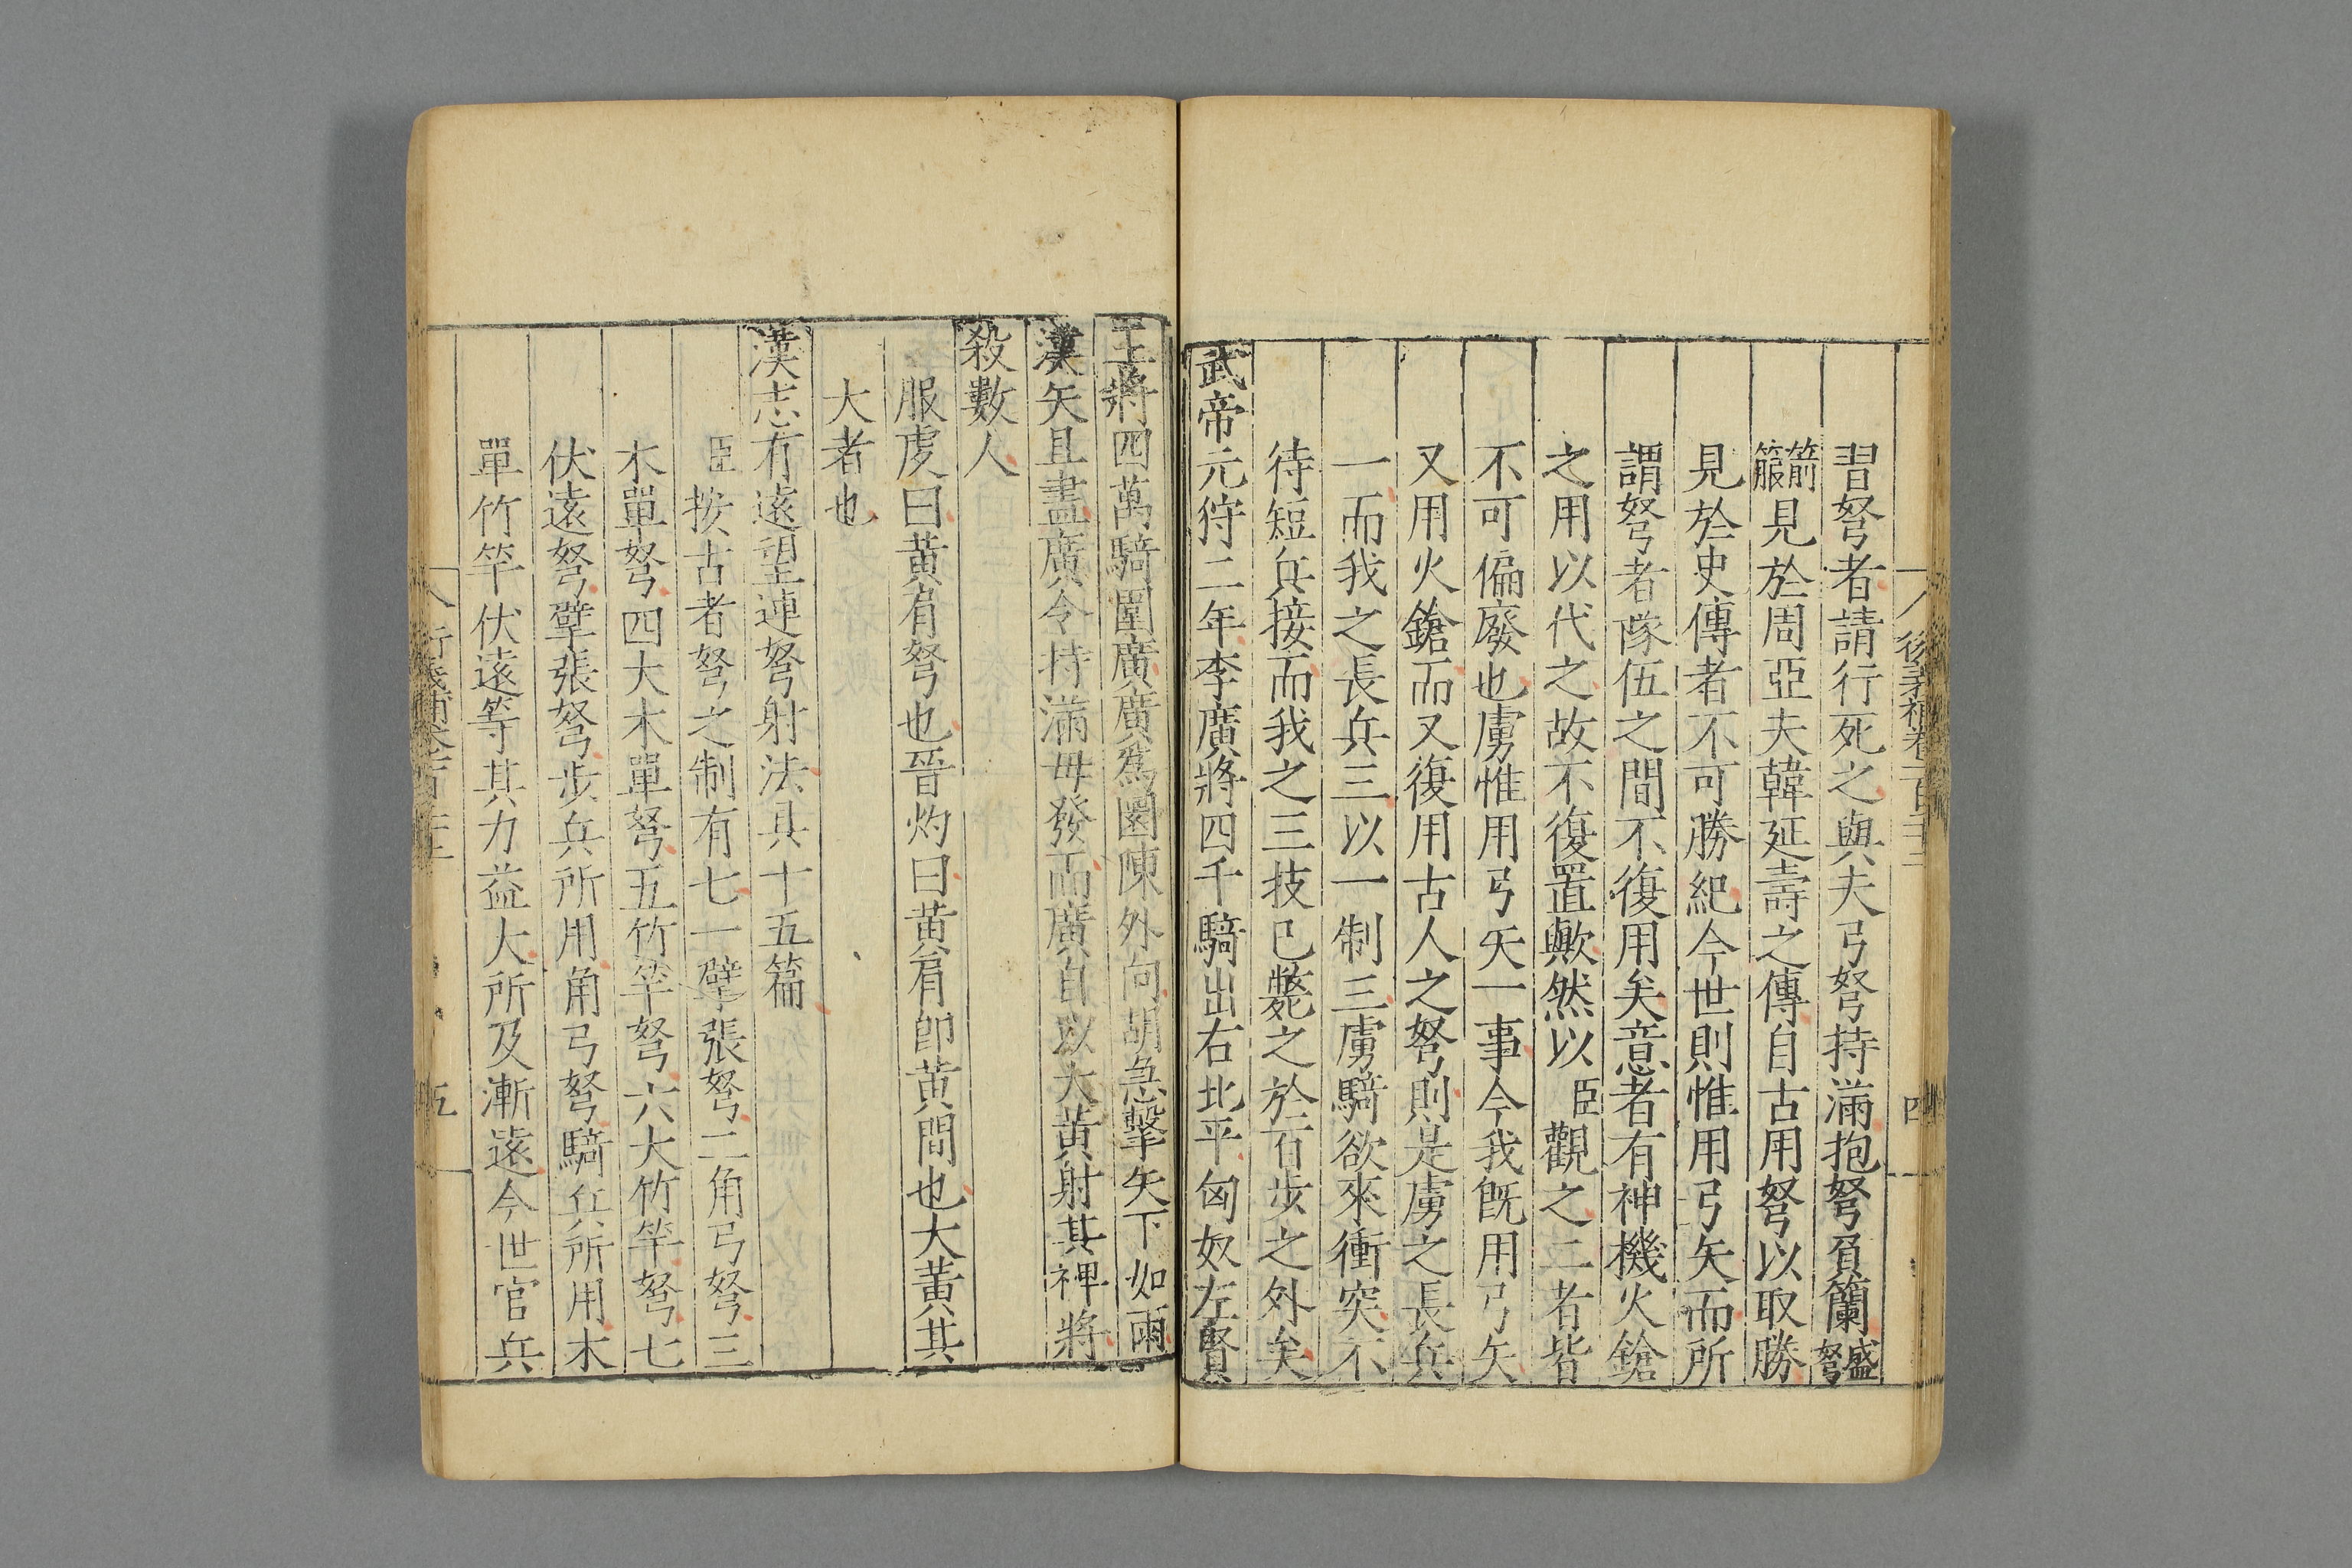 習弩者請行死之與夫弓弩持滿抱弩負籣盛弩
箭箙見於周亞夫韓延壽之傳自古用弩以取勝
見於史傳者不可勝紀今世則惟用弓矢而所
謂弩者隊伍之間不復用矣意者有神機火鎗
之用以代之故不復置歟然以臣觀之二者皆
不可偏廢也虜惟用弓矢一事今我既用弓矢
又用火鎗而又復用古人之弩則是虜之長兵
一而我之長兵三以一制三虜騎欲來衝突不
待短兵接而我之三技已斃之於百步之外矣
武帝元狩二年李廣將四千騎出右北平匈奴左賢
王將四萬騎圍廣廣爲圜陳外向胡急擊矢下如雨
漢矢且盡廣令持滿毋發而廣自以大黃射其裨將
殺數人
服虔曰黃肩弩也晉灼曰黃肩卽黃間也大黃其
大者也
漢志有遠望連弩射法具十五篇
臣按古者弩之制有七一擘張弩二角弓弩三
木單弩四大木單弩五竹竿弩六大竹竿弩七
伏遠弩擘張弩步兵所用角弓弩騎兵所用木
單竹竿伏遠等其力益大所及漸遠今世官兵
五